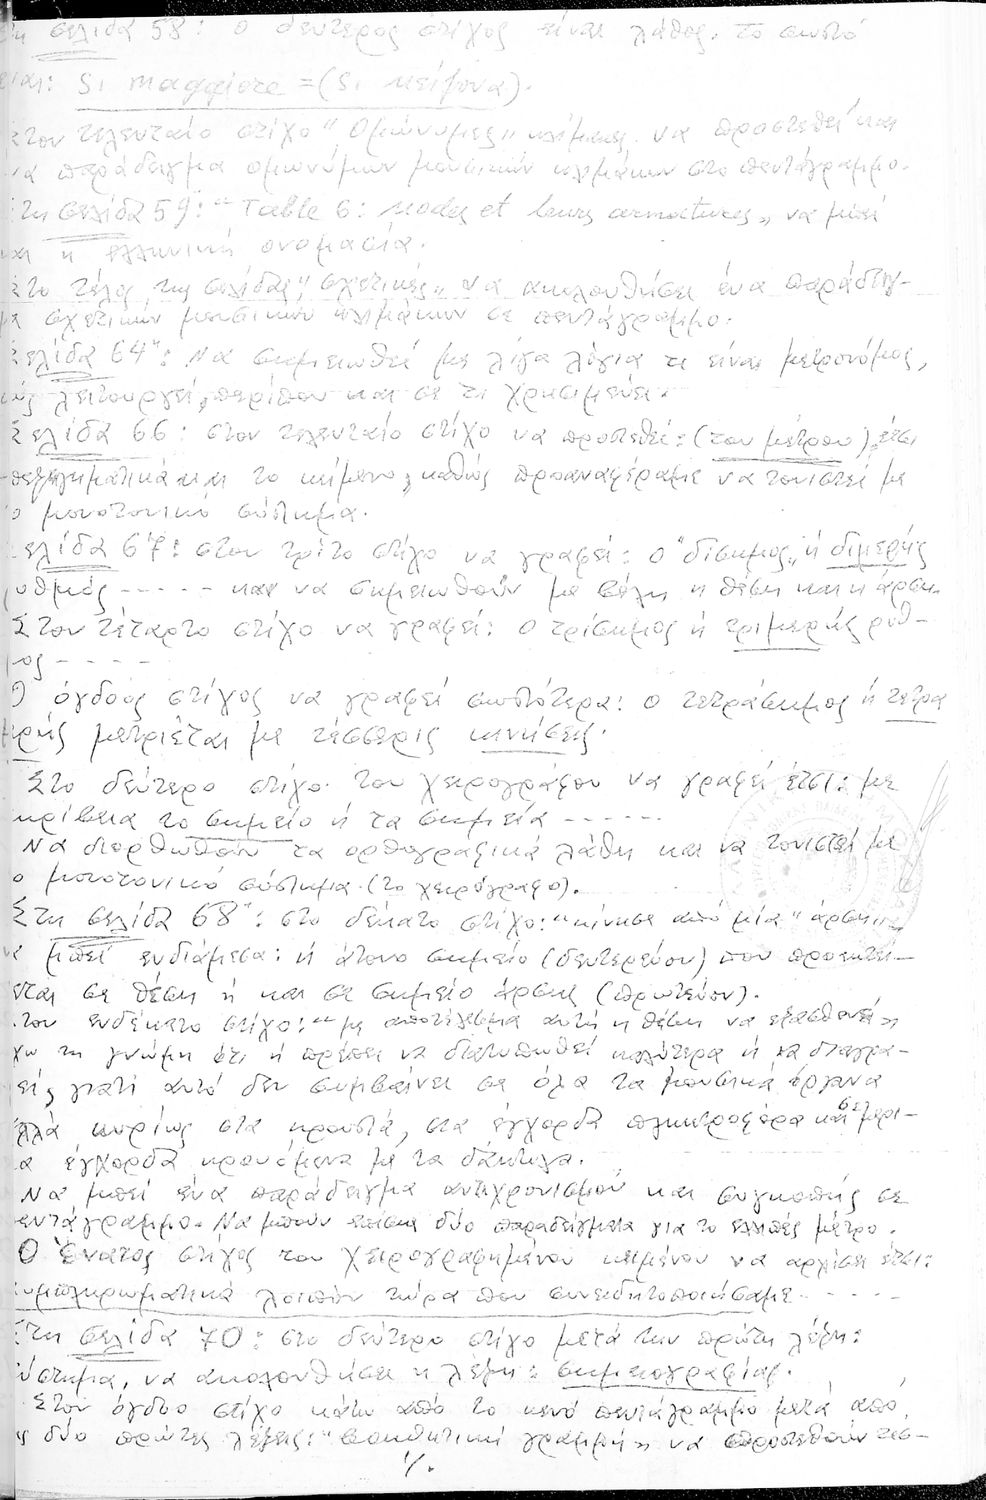 τη σελίδα 58: ο δεύτερος στίχος είναι λάθος. το σωστό
είναι: Si maggiore = (Si μείζονα).
Στον τελευταίο στίχο "Ομώνυμες" κλίμακες. να προστεθεί και
να παράδειγμα ομωνύμων μουσικών κλιμάκων στο πεντάγραμμο.
Στη σελίδα 59: "Table 6: Modes et leurs armatures" να μπεί
και η ελληνική ονομασία.
Στο τέλος της σελίδας "σχετικές" να ακολουθήσει ένα παράδειγ-
μα σχετικών μουσικών κλιμάκων σε πεντάγραμμο.
Σελίδα 64": Να σημειωθεί με λίγα λόγια τι είναι μετρονόμος,
πώς λειτουργεί περίπου και σε τι χρησιμεύει.
Σελίδα 66: στον τελευταίο στίχο να προστεθεί: (του μέτρου) έτσι
επεξηγηματικά και το κείμενο, καθώς προαναφέραμε να τονιστεί με
το μονοτονικό σύστημα.
Σελίδα 67: στον τρίτο στίχο να γραφεί: ο "δίσημος" ή διμερής
ρυθμός ----- και να σημειωθούν με βέλη η θέση και η άρση.
Στον τέταρτο στίχο να γραφεί: ο τρίσημος ή τριμερής ρυθ-
μος -----
Ο όγδοος στίχος να γραφεί σωστότερα: ο τετράσημος ή τετρα
μερής μετριέται με τέσσερις κινήσεις.
Στο δεύτερο στίχο του χειρογράφου να γραφεί έτσι: με
ακρίβεια το σημείο ή τα σημεία ------
Να διορθωθούν τα ορθογραφικά λάθη και να τονιστεί με
το μονοτονικό σύστημα. (το χειρόγραφο).
Στη σελίδα 68": στο δέκατο στίχο: "κίνησε από μία" άρση"
να μπεί ενδιάμεσα: ή άτονο σημείο (δευτερεύον) που προεκτεί-
εται σε θέση ή και σε σημείο άρσης (πρωτεύον).
Στον ενδέκατο στίχο: "με αποτέλεσμα αυτή η θέση να εξασθενεί"
έχω τη γνώμη ότι ή πρέπει να διατυπωθεί καλύτερα ή να διαγρα-
φεί, γιατί αυτό δεν συμβαίνει σε όλα τα μουσικά όργανα
αλλά κυρίως στα κρουστά, στα έγχορδα πληκτροφόρα και σε μερι-
κα έγχορδα κρουόμενα με τα δάκτυλα.
Να μπεί ένα παράδειγμα αντιχρονισμού και συγκοπής σε
πεντάγραμμο. Να μπούν επίσης δύο παραδείγματα για το ελλιπές μέτρο.
Ο Ένατος στίχος του χειρογραφημένου κειμένου να αρχίσει έτσι:
συμπληρωματικά λοιπόν τώρα που συνειδητοποιήσαμε -----
Στη σελίδα 70: στο δεύτερο στίχο μετά την πρώτη λέξη:
σύστημα, να ακολουθήσει η λέξη: σημειογραφίας.
Στον όγδοο στίχο κάτω από το κενό πεντάγραμμο μετά από
τις δύο πρώτες λέξεις: "βοηθητική γραμμή" να προστεθούν τεσ-
./.